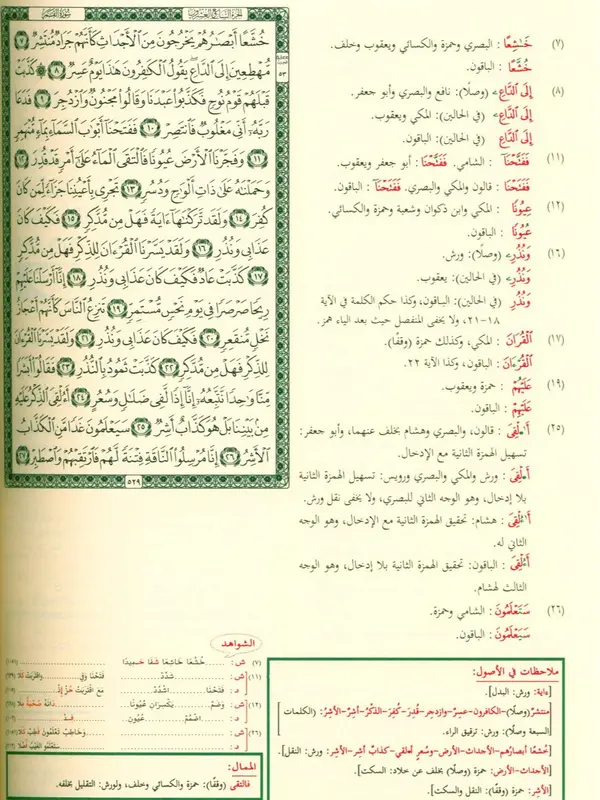 الجزء السابع والعشرون
سورة القمر
خُشَّعًا أَبْصَٰرُهُمْ يَخْرُجُونَ مِنَ ٱلْأَجْدَاثِ كَأَنَّهُمْ جَرَادٌ مُّنتَشِرٌ ٧
مُّهْطِعِينَ إِلَى ٱلدَّاعِ يَقُولُ ٱلْكَٰفِرُونَ هَٰذَا يَوْمٌ عَسِرٌ ٨ كَذَّبَتْ
قَبْلَهُمْ قَوْمُ نُوحٍ فَكَذَّبُوا۟ عَبْدَنَا وَقَالُوا۟ مَجْنُونٌ وَٱزْدُجِرَ ٩ فَدَعَا
رَبَّهُۥٓ أَنِّى مَغْلُوبٌ فَٱنتَصِرْ ١٠ فَفَتَحْنَآ أَبْوَٰبَ ٱلسَّمَآءِ بِمَآءٍ مُّنْهَمِرٍ
١١ وَفَجَّرْنَا ٱلْأَرْضَ عُيُونًا فَٱلْتَقَى ٱلْمَآءُ عَلَىٰٓ أَمْرٍ قَدْ قُدِرَ ١٢
وَحَمَلْنَٰهُ عَلَىٰ ذَاتِ أَلْوَٰحٍ وَدُسُرٍ ١٣ تَجْرِى بِأَعْيُنِنَا جَزَآءً لِّمَن كَانَ
كُفِرَ ١٤ وَلَقَد تَّرَكْنَٰهَآ ءَايَةً فَهَلْ مِن مُّدَّكِرٍ ١٥ فَكَيْفَ كَانَ
عَذَابِى وَنُذُرِ ١٦ وَلَقَدْ يَسَّرْنَا ٱلْقُرْءَانَ لِلذِّكْرِ فَهَلْ مِن مُّدَّكِرٍ
١٧ كَذَّبَتْ عَادٌ فَكَيْفَ كَانَ عَذَابِى وَنُذُرِ ١٨ إِنَّآ أَرْسَلْنَا عَلَيْهِمْ
رِيحًا صَرْصَرًا فِى يَوْمِ نَحْسٍ مُّسْتَمِرٍّ ١٩ تَنزِعُ ٱلنَّاسَ كَأَنَّهُمْ أَعْجَازُ
نَخْلٍ مُّنقَعِرٍ ٢٠ فَكَيْفَ كَانَ عَذَابِى وَنُذُرِ ٢١ وَلَقَدْ يَسَّرْنَا ٱلْقُرْءَانَ
لِلذِّكْرِ فَهَلْ مِن مُّدَّكِرٍ ٢٢ كَذَّبَتْ ثَمُودُ بِٱلنُّذُرِ ٢٣ فَقَالُوٓا۟ أَبَشَرًا
مِّنَّا وَٰحِدًا نَّتَّبِعُهُۥٓ إِنَّآ إِذًا لَّفِى ضَلَٰلٍ وَسُعُرٍ ٢٤ أَءُلْقِىَ ٱلذِّكْرُ عَلَيْهِ
مِنۢ بَيْنِنَا بَلْ هُوَ كَذَّابٌ أَشِرٌ ٢٥ سَيَعْلَمُونَ غَدًا مَّنِ ٱلْكَذَّابُ
ٱلْأَشِرُ ٢٦ إِنَّا مُرْسِلُوا۟ ٱلنَّاقَةِ فِتْنَةً لَّهُمْ فَٱرْتَقِبْهُمْ وَٱصْطَبِرْ ٢٧
٥٢٩
(٧) خَٰشِعًا : البصري وحمزة والكسائي ويعقوب وخلف.
خُشَّعًا : الباقون.
(٨) إِلَى ٱلدَّاعِۦ (وصلًا): نافع والبصري وأبو جعفر.
إِلَى ٱلدَّاعِۦ (في الحالين): المكي ويعقوب.
إِلَى ٱلدَّاعِ (في الحالين): الباقون.
(١١) فَفَتَّحْنَآ : الشامي. فَفَتَّحْنَا : أبو جعفر ويعقوب.
فَفَتَحْنَا : قالون والمكي والبصري. فَفَتَحْنَآ : الباقون.
(١٢) عِيُونًا : المكي وابن ذكوان وشعبة وحمزة والكسائي.
عُيُونًا : الباقون.
(١٦) وَنُذُرِۦ (وصلًا): ورش.
وَنُذُرِۦ (في الحالين): يعقوب.
وَنُذُرِ (في الحالين): الباقون، وكذا حكم الكلمة في الآية
١٨-٢١، ولا يخفى المنفصل حيث بعد الياء همز.
(١٧) ٱلْقُرَانَ : المكي، وكذلك حمزة (وقفًا).
ٱلْقُرْءَانَ : الباقون، وكذا الآية ٢٢.
(١٩) عَلَيْهُمْ : حمزة ويعقوب.
عَلَيْهِمْ : الباقون.
(٢٥) أَ۬لْقِىَ : قالون، والبصري وهشام بخلف عنهما، وأبو جعفر:
تسهيل الهمزة الثانية مع الإدخال.
أَ۬لْقِىَ : ورش والمكي والبصري ورويس: تسهيل الهمزة الثانية
بلا إدخال، وهو الوجه الثاني للبصري، ولا يخفى نقل ورش.
أَٓءُلْقِىَ : هشام: تحقيق الهمزة الثانية مع الإدخال، وهو الوجه
الثاني له.
أَءُلْقِىَ : الباقون: تحقيق الهمزة الثانية بلا إدخال، وهو الوجه
الثالث لهشام.
(٢٦) سَتَعْلَمُونَ : الشامي وحمزة.
سَيَعْلَمُونَ : الباقون.
الشواهد
(٧) ش: خُشَّعًا خَاشِعًا شَفَا حَمِيدًا
(١١) ش: شَدِّدْ فَتَحْنَا
د: فَتَحْنَا اشْدُدْ مَعَ اقْتَرَبَتْ حُزْ إِذْ
(١٢) ش: وَضَمَّ يَكْسِرَانِ عُيُونًا
د: اضْمُمْ عُيُونِ فِدْ
(٢٦) ش: وَخَاطِبْ تَعْلَمُونَ فَطِبْ كَلَا
الممال:
فالتقى (وقفًا): حمزة والكسائي وخلف، ولورش: التقليل بخلفه.
ملاحظات في الأصول:
[ءاية: ورش: البدل].
[منتشر (وصلًا)-الكافرون-عسر-وازدجر-قُدِر-كُفِر-الذكر-أشر-الأشر: (الكلمات
السبعة وصلًا): ورش: ترقيق الراء.
[خُشعا أبصارهم-الأجداث-الأرض-وسُعر أءلقي-كذاب أشر-الأشر: ورش: النقل].
[الأجداث-الأرض: حمزة (وصلًا) بخلف عن خلاد: السكت].
[الأشر: حمزة (وقفًا): النقل والسكت].